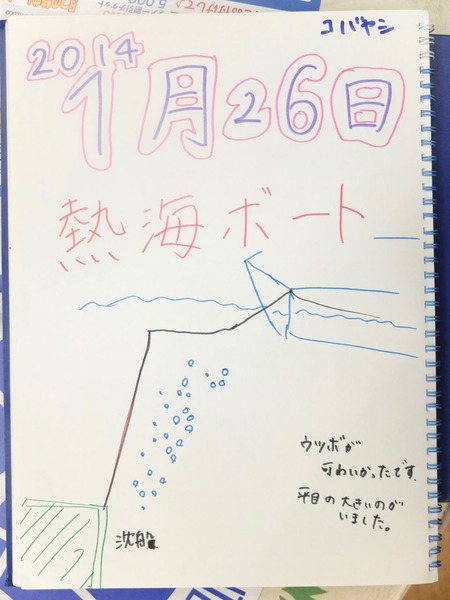 コバヤシ
2014
1月26日
熱海ボート
ウツボが
可わいかったです.
平目の大きいのが
いました。
沈船